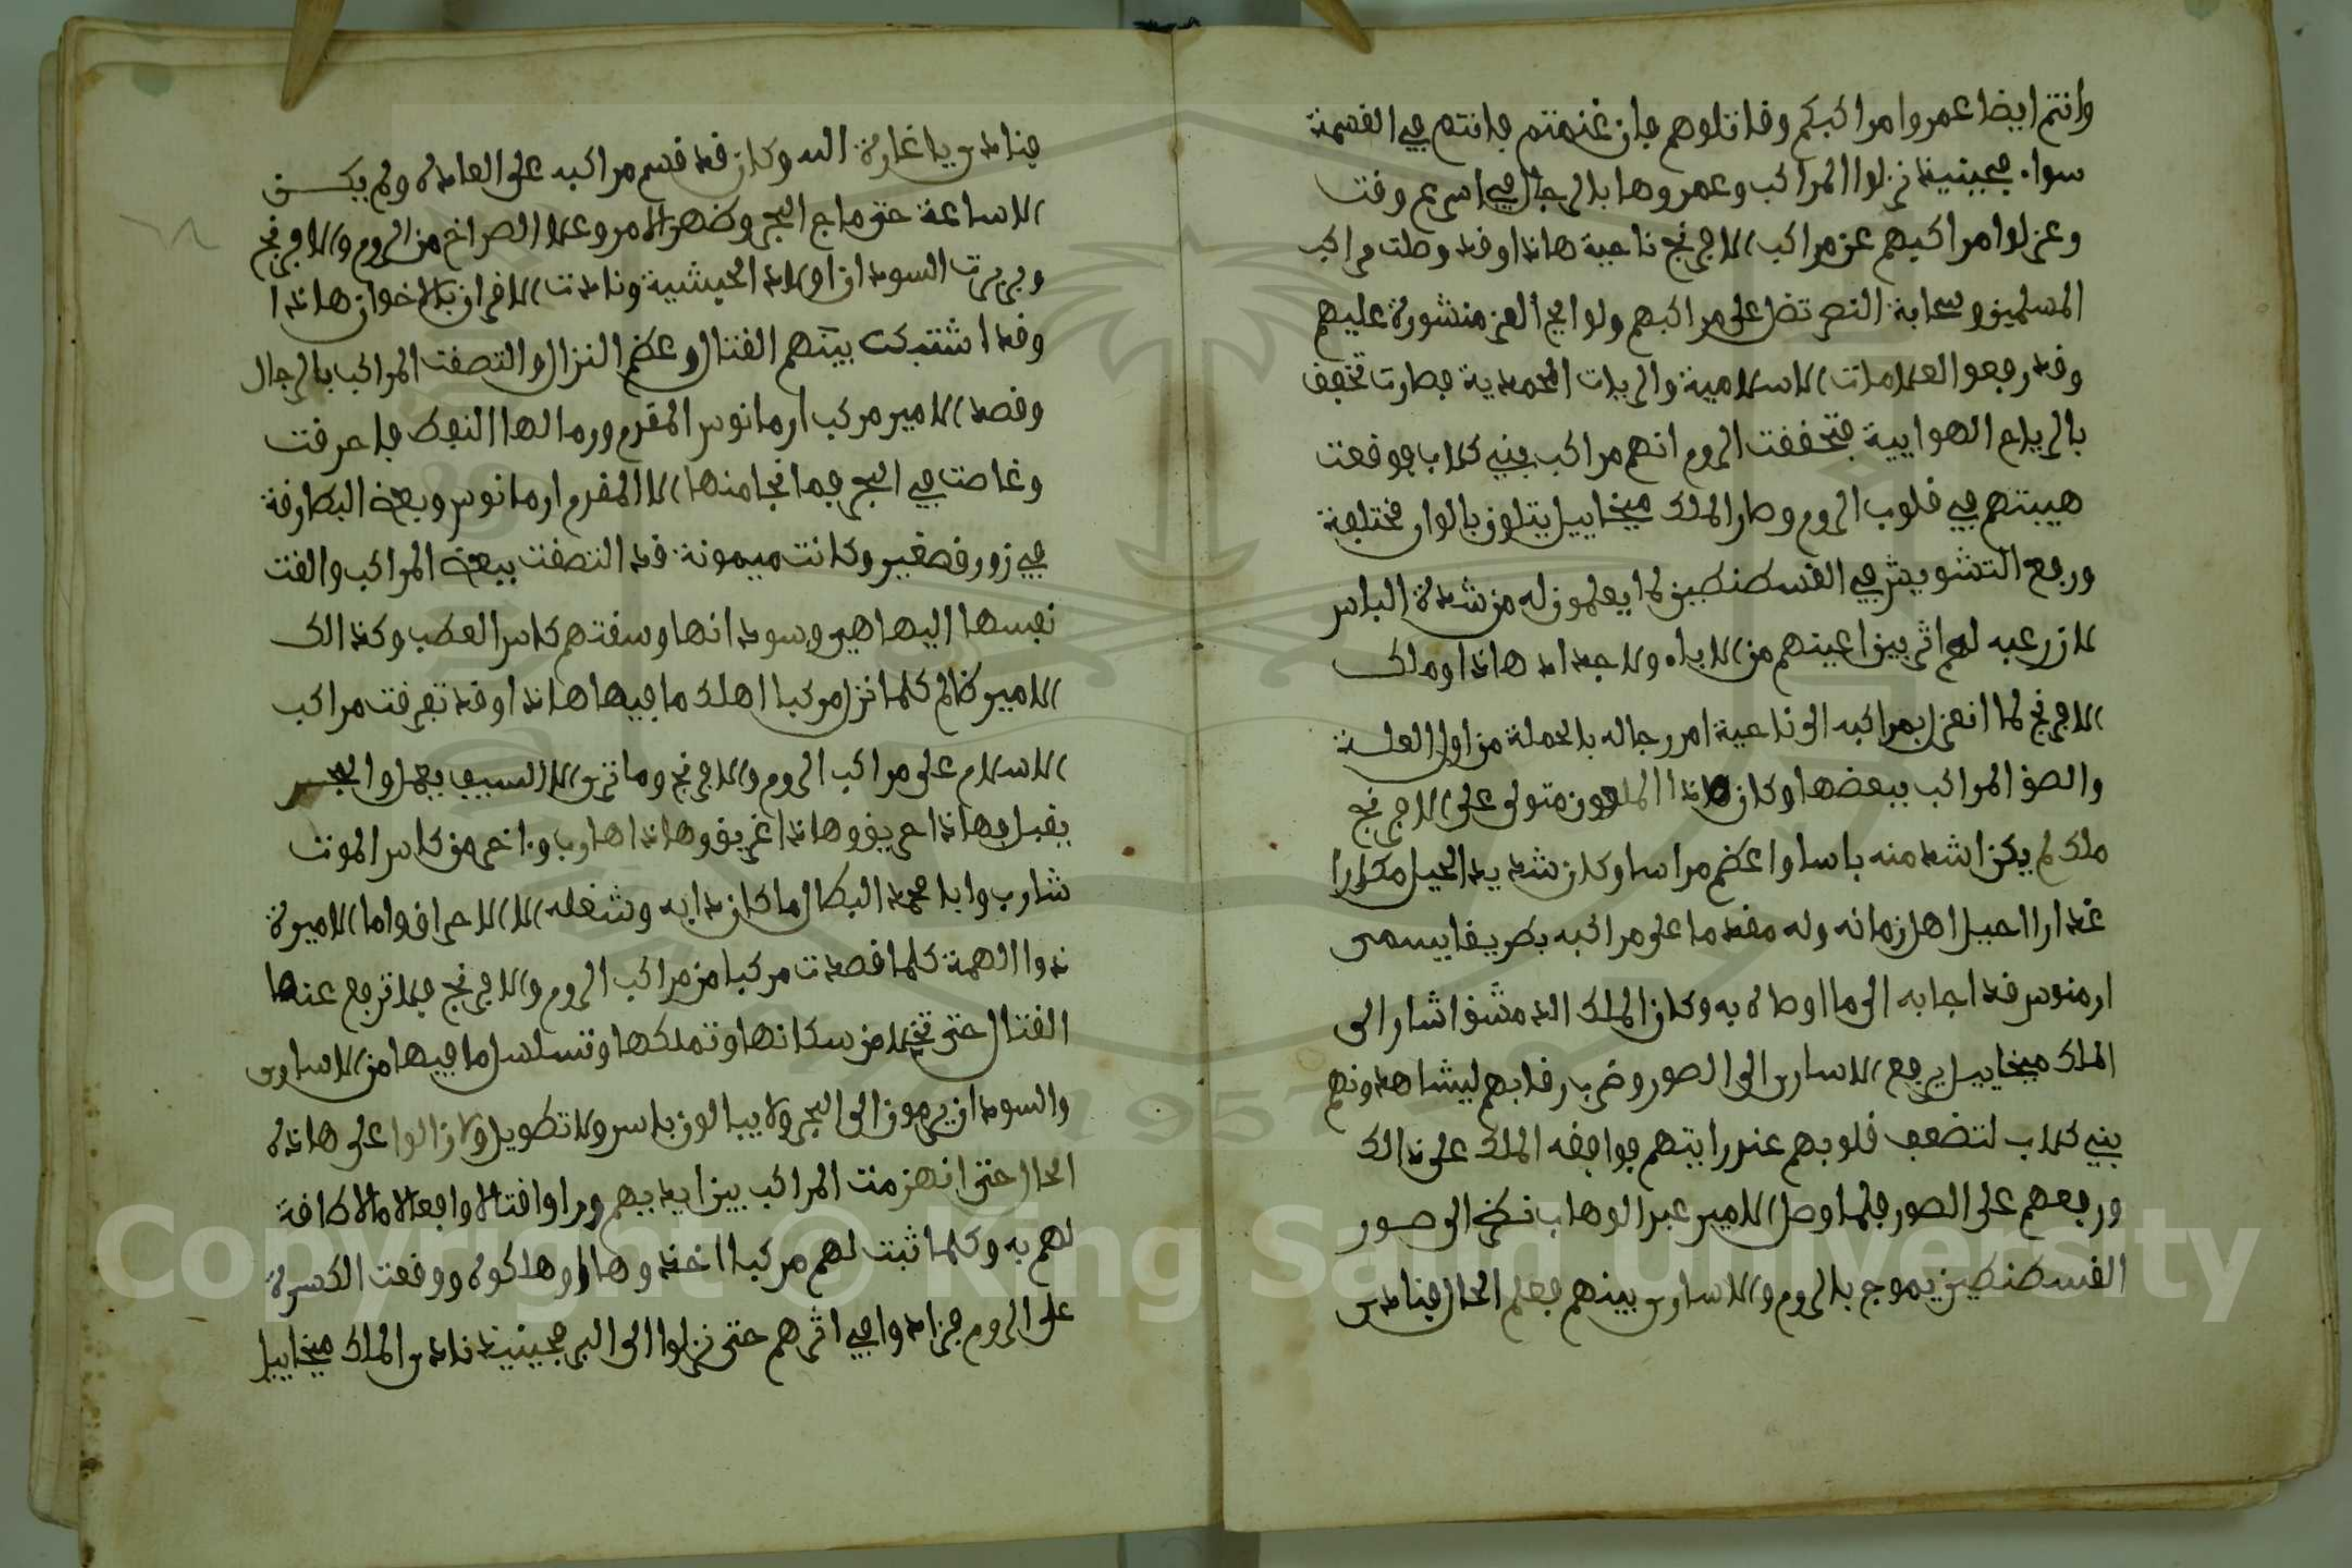 وانتم ايضا عمروا مراكبكم وقاتلوهم فان غنمتم فانتم في القسمة
سواء فحينيذ نزلوا المراكب وعمروها بالرجال في اسرع وقت
وعزلوا مراكبهم عن مراكب الافرنج ناحية هاذا وقد وصلت مراكب
المسلمين وسحابة النصر تضل على مراكبهم ولوايح العز منشورة عليهم
وقد رفعو العلامات الاسلامية والريات المحمدية فصارت تخفف
بالرياح الهوايية فتحققت الروم انهم مراكب بني كلاب فوقعت
هيبتهم في قلوب الروم وصار الملك ميخاييل يتلون بالوان مختلفة
ورفع التشويش في القسطنطين لما يعلمون له من شدة الباس
لان رعبه لهم اثر بين اعينهم من الاباء والاجداد هاذا وملك
الافرنج لما انعزل بمراكبه الى ناحية امر رجاله بالحملة من اول العلسة
والصق المراكب ببعضها وكان هاذا الملعون متولى على الافرنج
ملك لم يكن اشد منه باسا واعظم مراسا وكان شديد الحيل مكارا
غدارا احيل اهل زمانه وله مقدما على مراكبه بطريقا يسمى
ارمنوس قد اجابه الى ما اوصاه به وكان الملك الدمشق اشار الى
الملك ميخاييل يرفع الاسارى الى الصور وضرب رقابهم ليشاهدونهم
بني كلاب لتضعف قلوبهم عند رايتهم فوافقه الملك على ذالك
ورفعهم على الصور فلما وصل الامير عبد الوهاب نظر الى صور
القسطنطين يموج بالروم والاسارى بينهم فعلم الحال فنادى
فنادى ياغارة الله وكان قد قسم مراكبه على العادة ولم يكن
الاساعة حتى ماج البحر وضهر الامر وعلا الصراخ من الروم والافرنج
وبربرت السودان اولاد الحبشية ونادت الاقران بالاخوان هاذا
وقد اشتبكت بينهم القتال وعظم النزال والتصقت المراكب بالرجال
وقصد الامير مركب ارمانوس المقدم ورمالها النفط فاحرقت
وغاصت في البحر فما نجا منها الا المقدم ارمانوس وبعض البطارقة
في زورق صغير وكانت ميمونة قد التصقت ببعض المراكب والقت
نفسها اليها هي وسودانها وسقتهم كاس العطب وكذالك
الامير ظالم كلما نزل مركبا اهلك ما فيها هاذا وقد تفرقت مراكب
الاسلام على مراكب الروم والافرنج وما ترى الا السيف يعمل والبحر
يقبل فهاذا حريق وهاذا غريق وهاذا هارب واخر من كاس الموت
شارب وابا محمد البطال ما كان دابه وشغله الا الاحراق واما الاميرة
ذوا الهمة كلما قصدت مركبا من مراكب الروم والافرنج فلا ترجع عنها
القتال حتى تخلا من سكانها وتملكها وتسلسل ما فيها من الاسارى
والسودان يرمون الى البحر ولا يبالون باسر ولا تطويل ولازالوا على هاذه
الحال حتى انهزمت المراكب بين ايديهم وراوا قتالا وافعالا مالا طاقة
لهم به وكلما ثبت لهم مركبا اخذوها او هلكوه ووقعت الكسرة
على الروم فزادوا في اثرهم حتى نزلوا الى البر فحينيذ نادى الملك ميخاييل